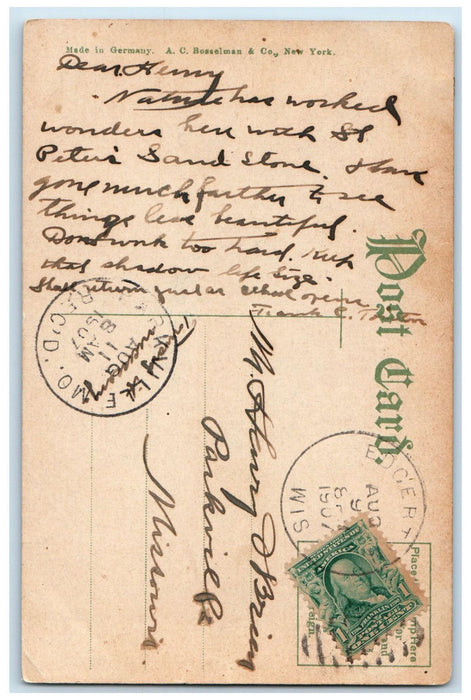 Made in Germany. A. C. Bosselman & Co., New York.
Dear Henry
Nature has worked
wonders here with St.
Peter's Sand Stone. I have
gone much farther to see
things less beautiful.
Dont work too hard. Keep
that shadow life size.
Shall return just as school opens.
Frank C.
Post Card.
PARKVILLE
AUG
11
8 AM
1907
MO. REC'D.
Mr. Henry O'Brien
Parkville
Missouri
EDGERT
AUG
9
1907
WIS
Place
Here
1